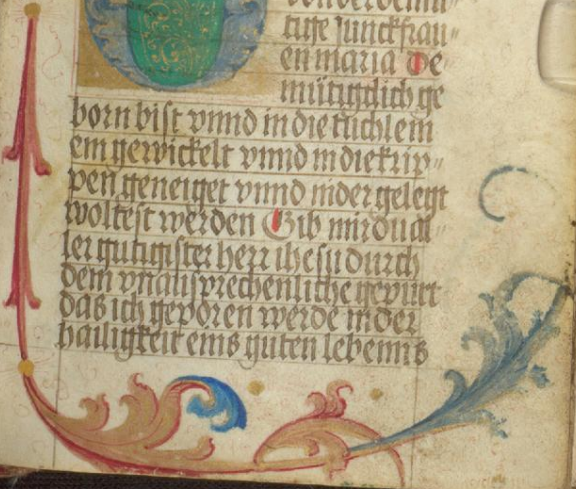 tige Junckfrau„
en maria De
mütigclich ge
born bist vnnd in die tüchlein
ein gewickelt vnnd in die krip„
pen geneiget vnnd nider gelegt
woltest werden Gib mir du al„
ler gutigister herr ihesu durch
dein vnaussprechenliche gepurt
das ich geporen werde in der
hailigkeit eins guten lebenns